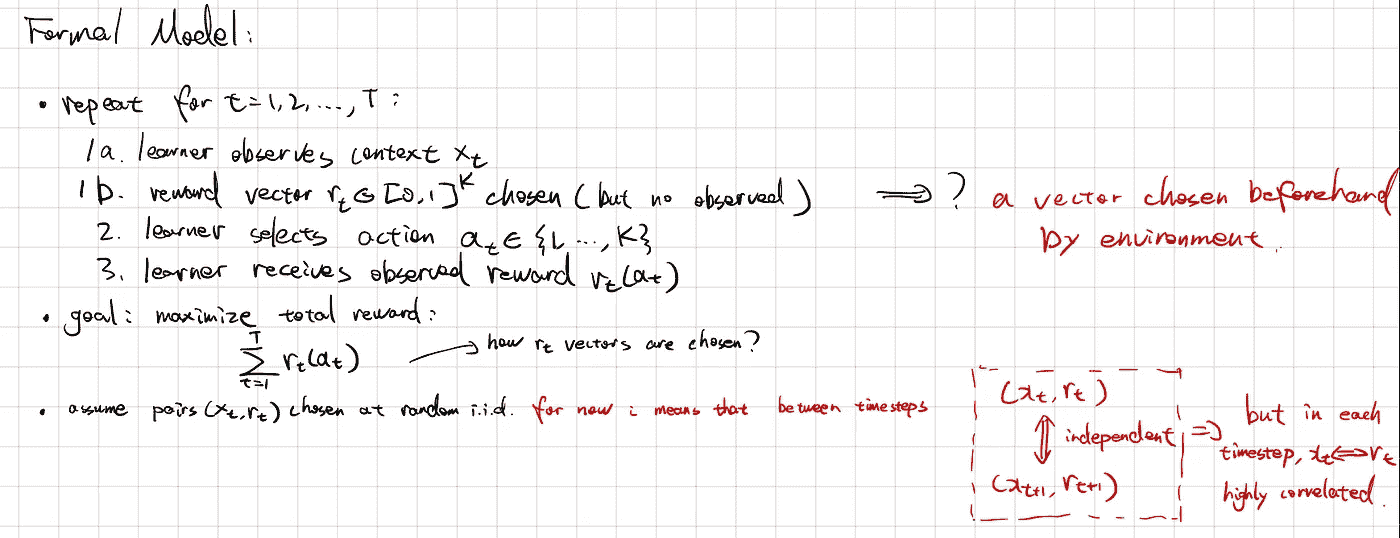 Formal Model:
• repeat for t=1,2,...,T:
1a. learner observes context x_t
1b. reward vector r_t ∈ [0,1]^K chosen (but no observed) ⟹ ? a vector chosen beforehand
by environment.
2. learner selects action a_t ∈ {1, ..., K}
3. learner receives observed reward r_t(a_t)
• goal: maximize total reward:
∑_{t=1}^{T} r_t(a_t) → how r_t vectors are chosen?
• assume pairs (x_t, r_t) chosen at random i.i.d. for now i means that between timesteps
(x_t, r_t)
⇕ independent
(x_{t+1}, r_{t+1})
⟹ but in each
timestep, x_t ⟺ r_t
highly correlated.